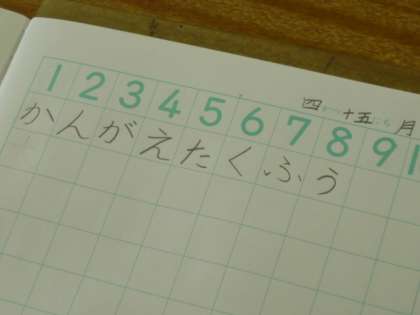 四 十五 月
1 2 3 4 5 6 7 8 9
かんがえたくふう